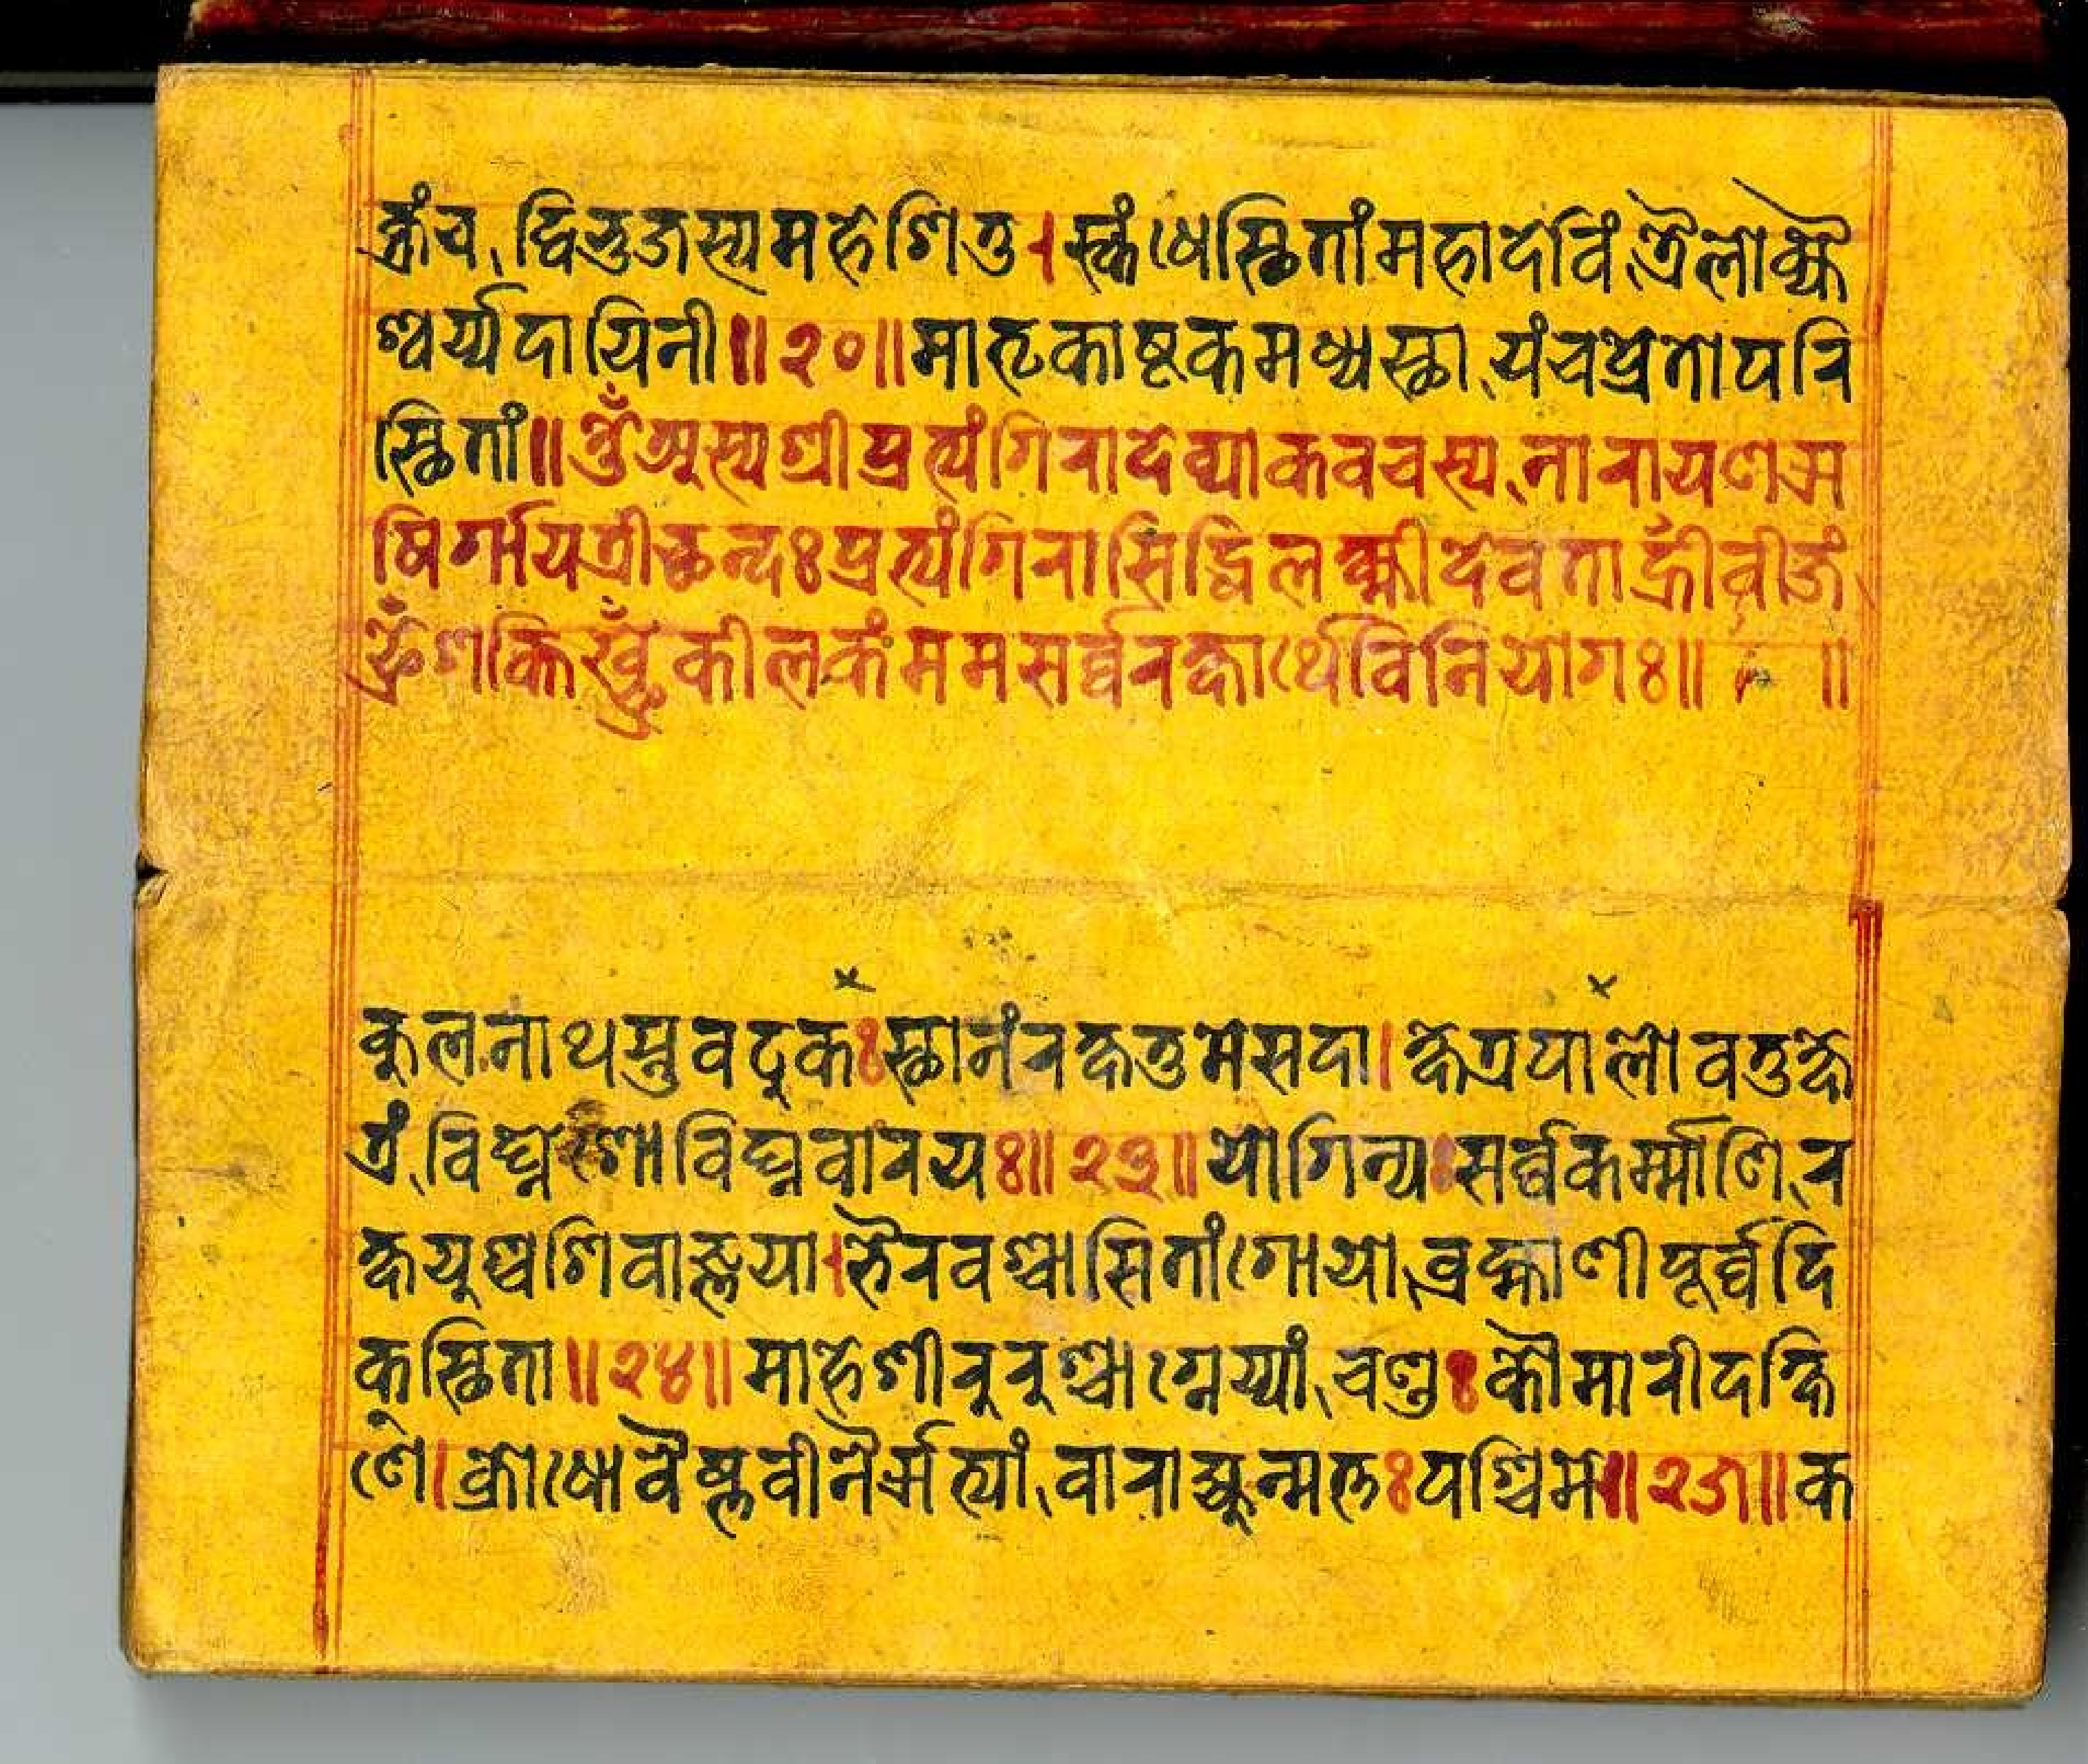 क्त्रंच, द्विभुजस्यमहेशितु । स्कंधेस्थितांमहादेविं, त्रैलोक्यै
श्वर्य्यदायिनी ॥ २० ॥ मातृकाष्टकमध्यस्था, पंचप्रेतोपरि
स्थितां ॥ ॐ अस्यश्रीप्रत्यंगिरादेव्याकवचस्य, नारायणऋ
षिर्गायत्रीछन्दः प्रत्यंगिरासिद्धिलक्ष्मीदेवताह्रीँवीजं,
शक्ति कीलकं ममसर्व्वरक्षार्थेविनियोगः ॥ ॥
कुलनाथस्तुवटुकः स्थानंरक्षतुमेसदा । क्षेत्रपालोवतुक्षे
त्रं, विघ्नेशोविघ्नवारयः ॥ २३ ॥ योगिन्यः सर्व्वकर्म्माणि, र
क्षयुश्चशिवाज्ञया । भैरवश्चासितांगोयो, व्रह्माणीपूर्व्वदि
क्स्थिता ॥ २४ ॥ माहेशीरुरुश्चाग्नेय्यां, चण्डः कौमारीदक्षि
णे । क्रोधोवैष्णवीनैर्ऋत्यां, वाराह्युन्मत्तः पश्चिमे ॥ २५ ॥ क